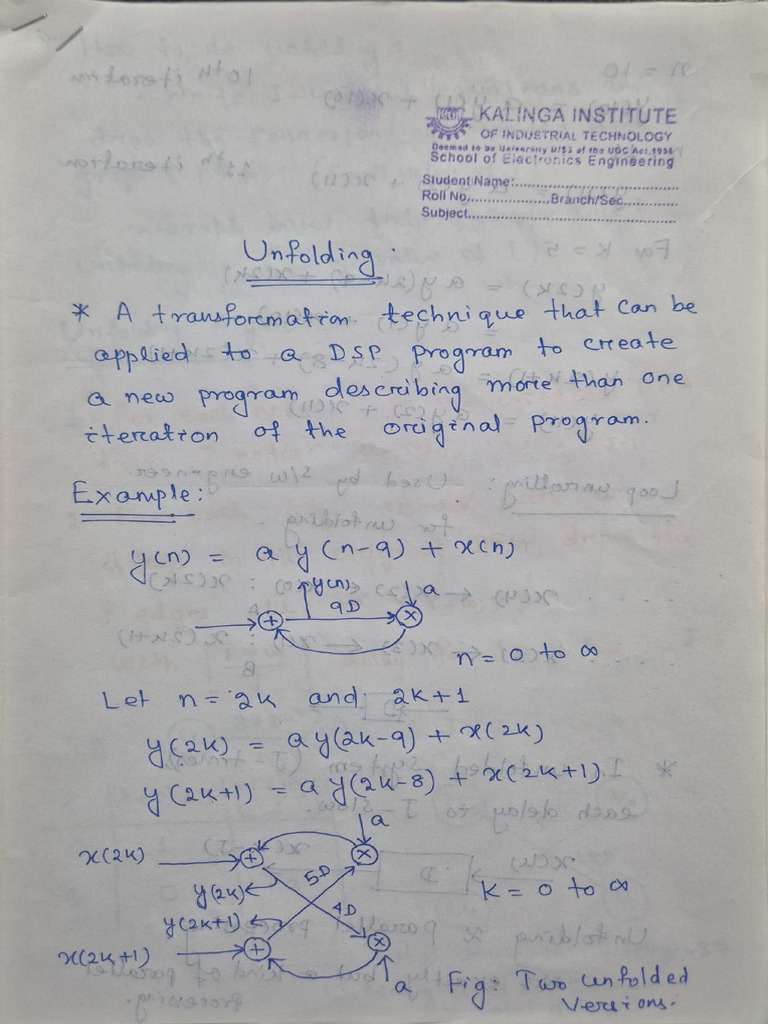 KALINGA INSTITUTE
OF INDUSTRIAL TECHNOLOGY
Deemed to be University U/S3 of the UGC Act, 1956
School of Electronics Engineering
Student Name:
Roll No. Branch/Sec
Subject
Unfolding:
* A transformation technique that can be
applied to a DSP program to create
a new program describing more than one
iteration of the original program.
Example:
y(n) = a y(n-9) + x(n)
y(n) a
+ 9D ×
n = 0 to ∞
Let n = 2k and 2k+1
y(2k) = a y(2k-9) + x(2k)
y(2k+1) = a y(2k-8) + x(2k+1)
a
x(2k) + ×
5D
y(2k) K = 0 to ∞
4D
y(2k+1)
x(2k+1) + ×
a Fig: Two unfolded
versions.